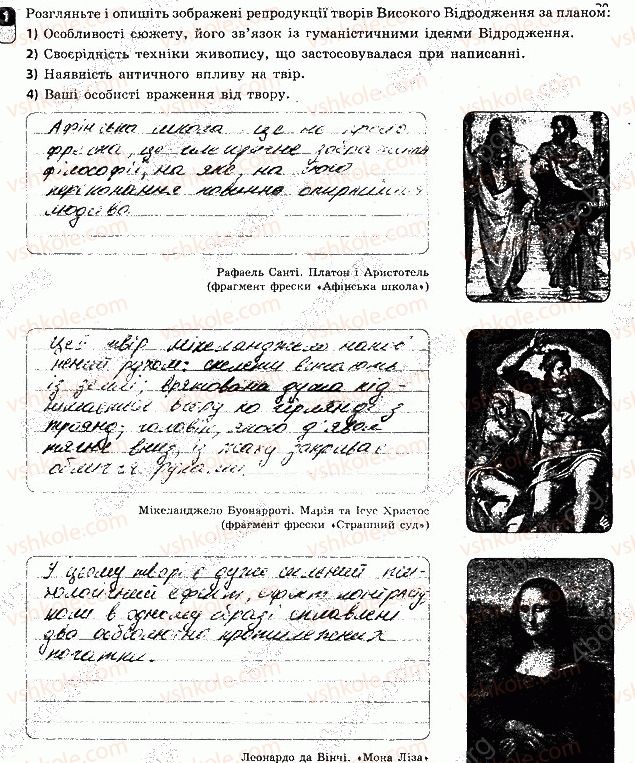 1 Розгляньте і опишіть зображені репродукції творів Високого Відродження за планом:
1) Особливості сюжету, його зв'язок із гуманістичними ідеями Відродження.
2) Своєрідність техніки живопису, що застосовувалася при написанні.
3) Наявність античного впливу на твір.
4) Ваші особисті враження від твору.
Афінська школа це не просто
фреска, це
філософії, на яке, на його
переконання повинно опиратися
людство.
Рафаель Санті. Платон і Аристотель
(фрагмент фрески «Афінська школа»)
Цей твір Мікеланджело
рухом: скелети
із землі; врятована душа під-
вгору по гірлянді з
троянд; чоловік, якого д'явол
тягне вниз, із жаху закриває
обличчя руками.
Мікеланджело Буонарроті. Марія та Ісус Христос
(фрагмент фрески «Страшний суд»)
У цьому творі є дуже сильний пси-
хологічний ефект, ефект контрасту
коли в одному образі сплавлені
два абсолютно протилежних
початки.
Леонардо да Вінчі. «Мона Ліза»
vshkole.com